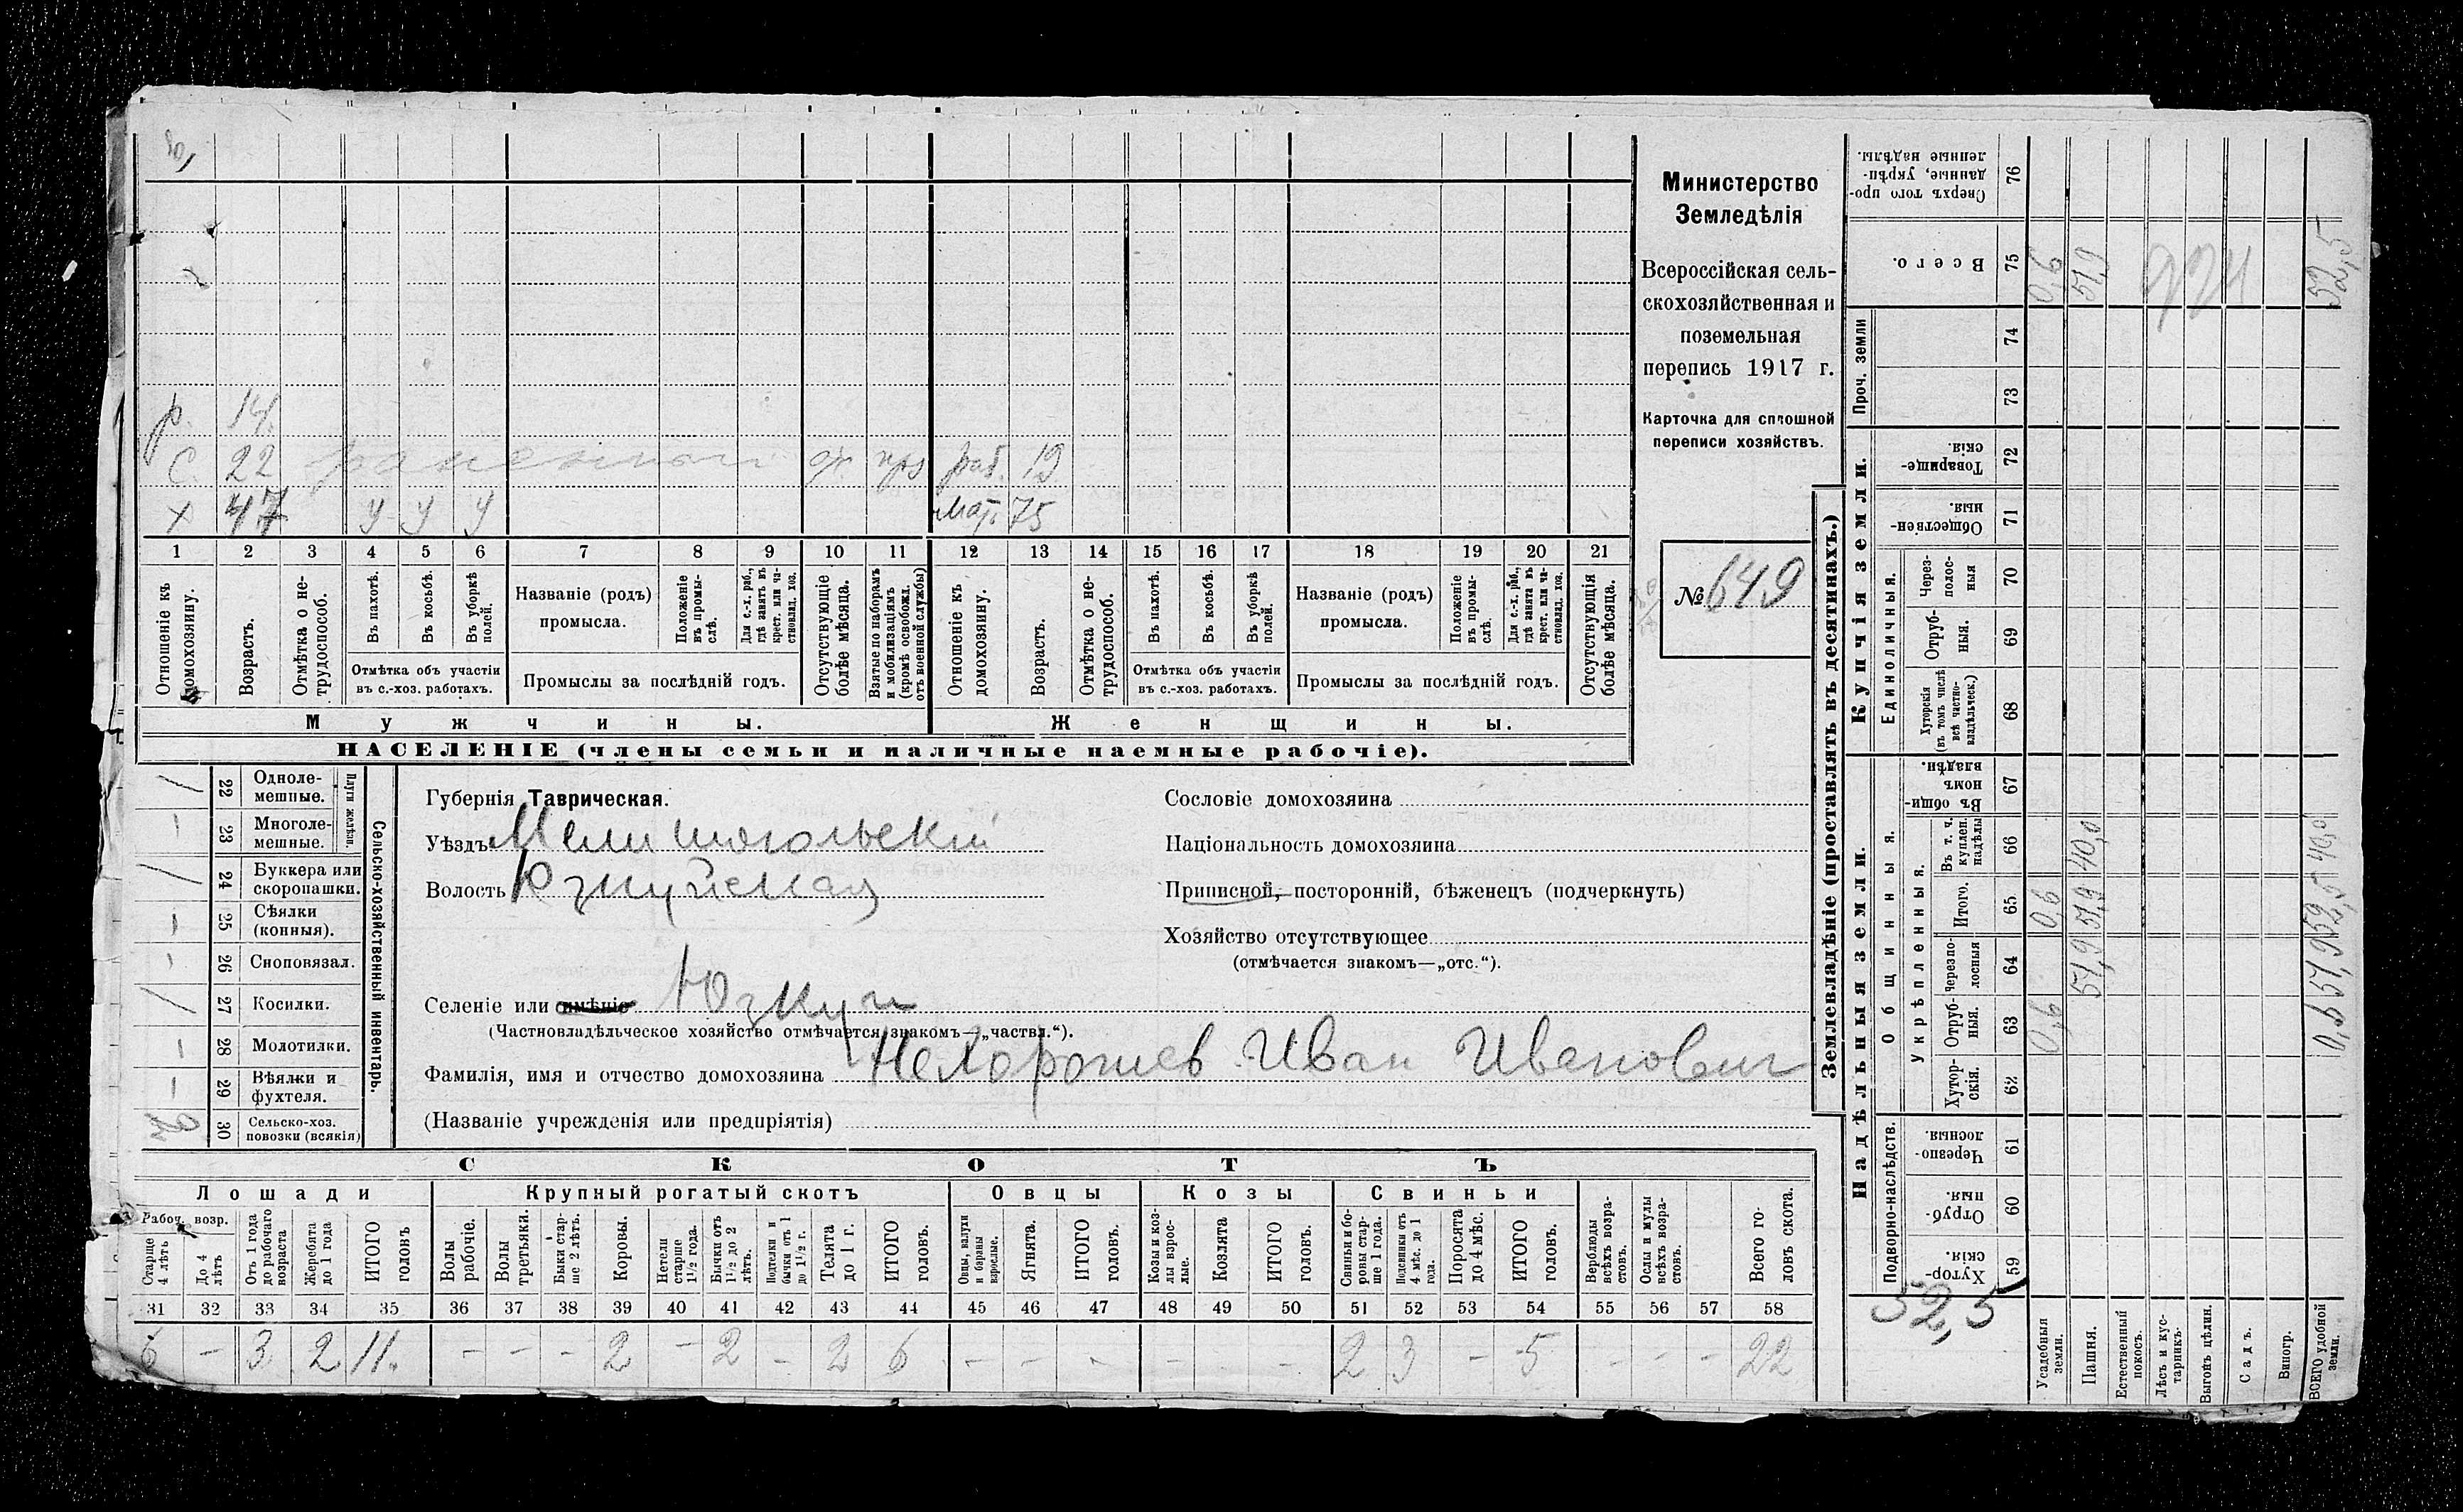 р. 14
С. 22 раненый от. раб. 19
х 47 у у у мат. 75
1 2 3 4 5 6 7 8 9 10 11 12 13 14 15 16 17 18 19 20 21
Отношеніе къ домохозяину.
Возрастъ.
Отмѣтка о нетрудоспособ.
Въ пахотѣ.
Въ косьбѣ.
Въ уборкѣ полей.
Отмѣтка объ участіи въ с.-хоз. работахъ.
Названіе (родъ) промысла.
Положеніе въ промыслѣ.
Для с.-х. раб., гдѣ занятъ въ крест. или частновлад. хоз.
Промыслы за послѣдній годъ.
Отсутствующіе болѣе мѣсяца.
Взятые по наборамъ и мобилизаціямъ (кромѣ освобожд. отъ военной службы)
Отношеніе къ домохозяину.
Возрастъ.
Отмѣтка о нетрудоспособ.
Въ пахотѣ.
Въ косьбѣ.
Въ уборкѣ полей.
Отмѣтка объ участіи въ с.-хоз. работахъ.
Названіе (родъ) промысла.
Положеніе въ промыслѣ.
Для с.-х. раб., гдѣ занята въ крест. или частновлад. хоз.
Промыслы за послѣдній годъ.
Отсутствующія болѣе мѣсяца.
Мужчины. Женщины.
НАСЕЛЕНІЕ (члены семьи и наличные наемные рабочіе).
Министерство
Земледѣлія
Всероссійская сель-
скохозяйственная и
поземельная
перепись 1917 г.
Карточка для сплошной
переписи хозяйствъ.
№ 649
Сельско-хозяйственный инвентарь.
Плуги желѣзн.
22 Одноле-
мешные.
23 Многоле-
мешные.
24 Буккера или
скоропашки.
25 Сѣялки
(конныя).
26 Сноповязал.
27 Косилки.
28 Молотилки.
29 Вѣялки и
фухтеля.
30 Сельско-хоз.
повозки (всякія)
Губернія Таврическая.
Уѣздъ Мелитопольскій
Волость Юзкуйская
Селеніе или имѣніе Юзкуи
(Частновладѣльческое хозяйство отмѣчается знакомъ—„частвл.“).
Фамилія, имя и отчество домохозяина Нехорошев Иван Иванович
(Названіе учрежденія или предпріятія)
Сословіе домохозяина
Національность домохозяина
Приписной, посторонній, бѣженецъ (подчеркнуть)
Хозяйство отсутствующее
(отмѣчается знакомъ—„отс.“).
СКОТЪ
Лошади Крупный рогатый скотъ Овцы Козы Свиньи
Рабоч. возр.
Старше 4 лѣтъ
До 4 лѣтъ
Отъ 1 года до рабочаго возраста
Жеребята до 1 года
ИТОГО головъ
Волы рабочіе.
Волы третьяки.
Быки старше 2 лѣтъ.
Коровы.
Нетели старше 1½ года.
Бычки отъ 1½ до 2 лѣтъ.
Подтелки и бычки отъ 1 до 1½ г.
Телята до 1 г.
ИТОГО головъ.
Овцы, валухи и бараны взрослые.
Ягнята.
ИТОГО головъ.
Козы и козлы взрослые.
Козлята
ИТОГО головъ.
Свиньи и боровы старше 1 года.
Подсвинки отъ 4 мѣс. до 1 года.
Поросята до 4 мѣс.
ИТОГО головъ.
Верблюды всѣхъ возрастовъ.
Ослы и мулы всѣхъ возрастовъ.
Всего головъ скота.
31 32 33 34 35 36 37 38 39 40 41 42 43 44 45 46 47 48 49 50 51 52 53 54 55 56 57 58
6 – 3 2 11. – – – 2 – 2 – 2 6 – – – – – – 2 3 – 5 – – – 22
Землевладѣніе (проставлять въ десятинахъ.)
Надѣльныя земли.
Купчія земли.
Проч. земли
Подворно-наслѣдств.
Общинныя.
Укрѣпленныя.
Единоличныя.
Хуторскія. 59
Отрубныя. 60
Черезполосныя. 61
Хуторскія. 62
Отрубныя. 63
Черезполосныя 64
Итого. 65
Въ т. ч. куплен. надѣлы 66
Въ общинномъ владѣн. 67
Хуторскія (въ томъ числѣ всѣ частновладѣльческ.) 68
Отрубныя. 69
Черезполосныя 70
Общественныя. 71
Товарищескія. 72
73
74
Всего. 75
Сверхъ того проданные, укрѣпленные надѣлы. 76
52,5
Усадебныя земли. 0,6 0,6 0,6
Пашня. 51,9 51,9 40,0 51,9
Естественный покосъ.
Лѣсъ и кустарникъ.
Выгонъ цѣлин.
Садъ.
Виногр.
ВСЕГО удобной земли. 0,6 51,9 52,5 40,0 52,5